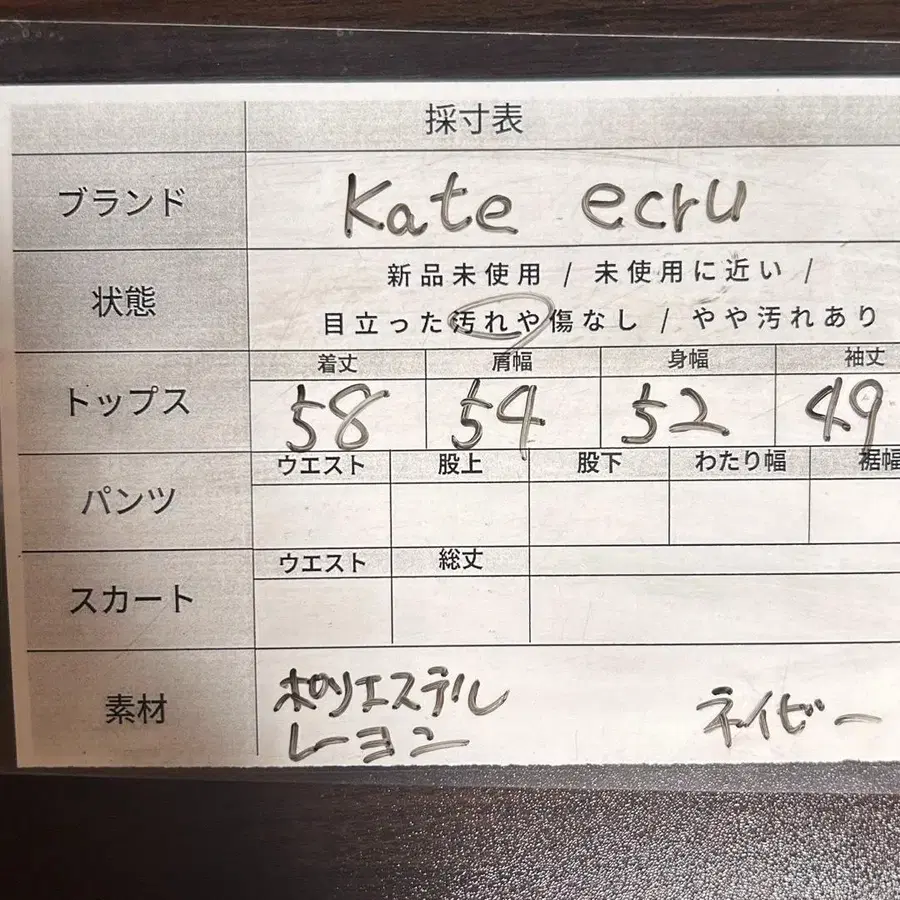 採寸表
ブランド Kate ecru
状態 新品未使用 / 未使用に近い /
目立った汚れや傷なし / やや汚れあり
着丈 肩幅 身幅 袖丈
トップス 58 54 52 49
ウエスト 股上 股下 わたり幅 裾幅
パンツ
ウエスト 総丈
スカート
素材 ポリエステル
レーヨン ネイビー